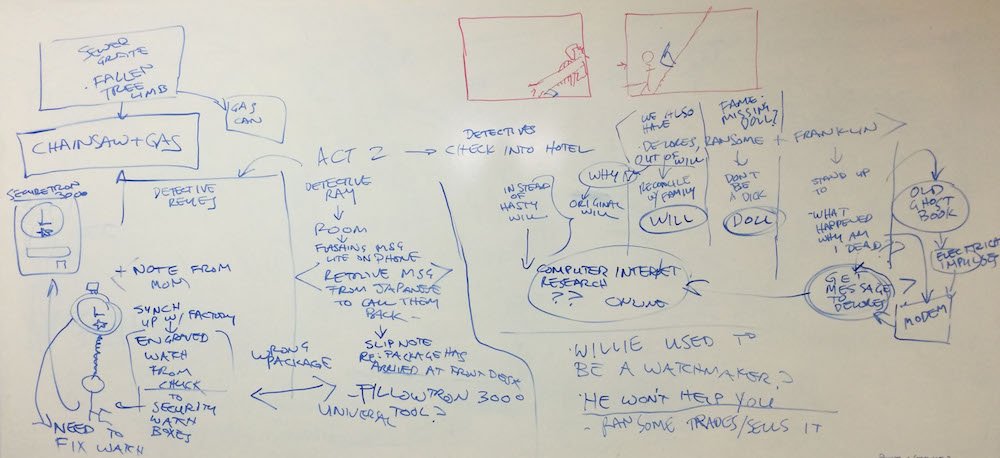 SEWER
GRATE
· FALLEN
TREE
LIMB
GAS
CAN
CHAINSAW + GAS
SECURETRON
3000
DETECTIVE
REYES
+ NOTE FROM
MOM
SYNCH
UP W/ FACTORY
ENGRAVED
WATCH
FROM
CHUCK
TO
SECURITY
WATCH
BOXES
NEED TO
FIX WATCH
ACT 2
DETECTIVES
CHECK INTO HOTEL
DETECTIVE
RAY
ROOM
FLASHING MSG
LITE ON PHONE
RETREIVE MSG
FROM JAPANESE
TO CALL THEM
BACK -
SLIP NOTE
RE: PACKAGE HAS
ARRIVED AT FRONT DESK
WRONG
PACKAGE
- PILLOWTRON 3000
UNIVERSAL TOOL?
WE ALSO
HAVE
· DELORES,
OUT OF WILL
WHY
INSTEAD
OF
HASTY
WILL
ORIGINAL
WILL
RECONCILE
W/ FAMILY
WILL
FAME -
MISSING
DOLL?
RANSOME + FRANKLIN
DON'T
BE
A DICK
DOLL
STAND UP
TO
- WHAT
HAPPENED
WHY AM
I DEAD?
GET
MESSAGE
TO
DELORES
OLD
GHOST
BOOK
ELECTRICAL
IMPULSES
MODEM
COMPUTER INTERNET
RESEARCH
?? ONLINE
· WILLIE USED TO
BE A WATCHMAKER?
· HE WON'T HELP YOU
- RANSOME TRADES/SELLS IT